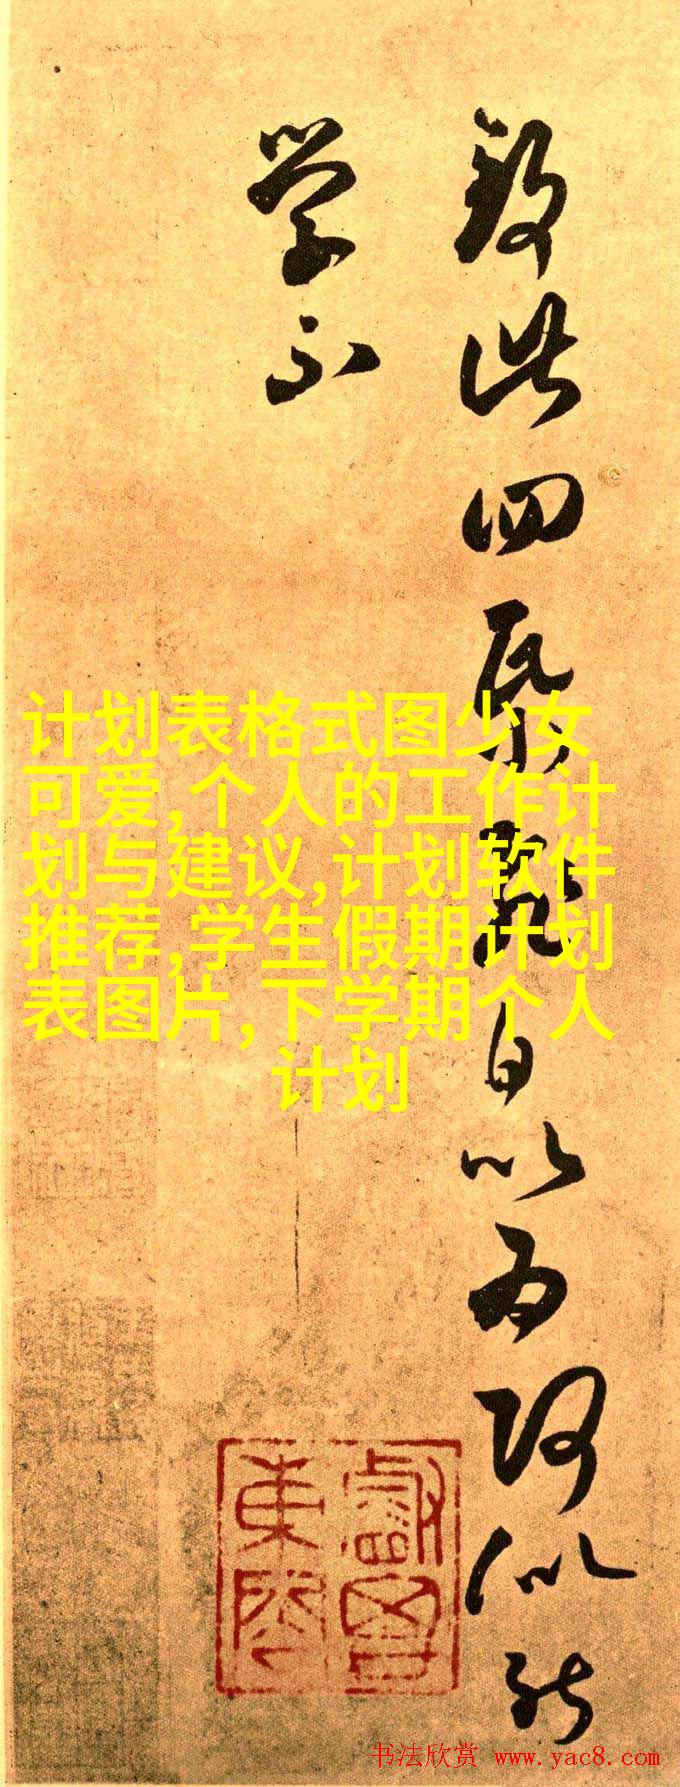 此四自以为似能
学不
计划表格式图少女
可爱,个人的工作计
划与建议,计划软件
推荐,学生假期计划
表图片,下学期个人
计划
书法欣赏 www.yac8.com